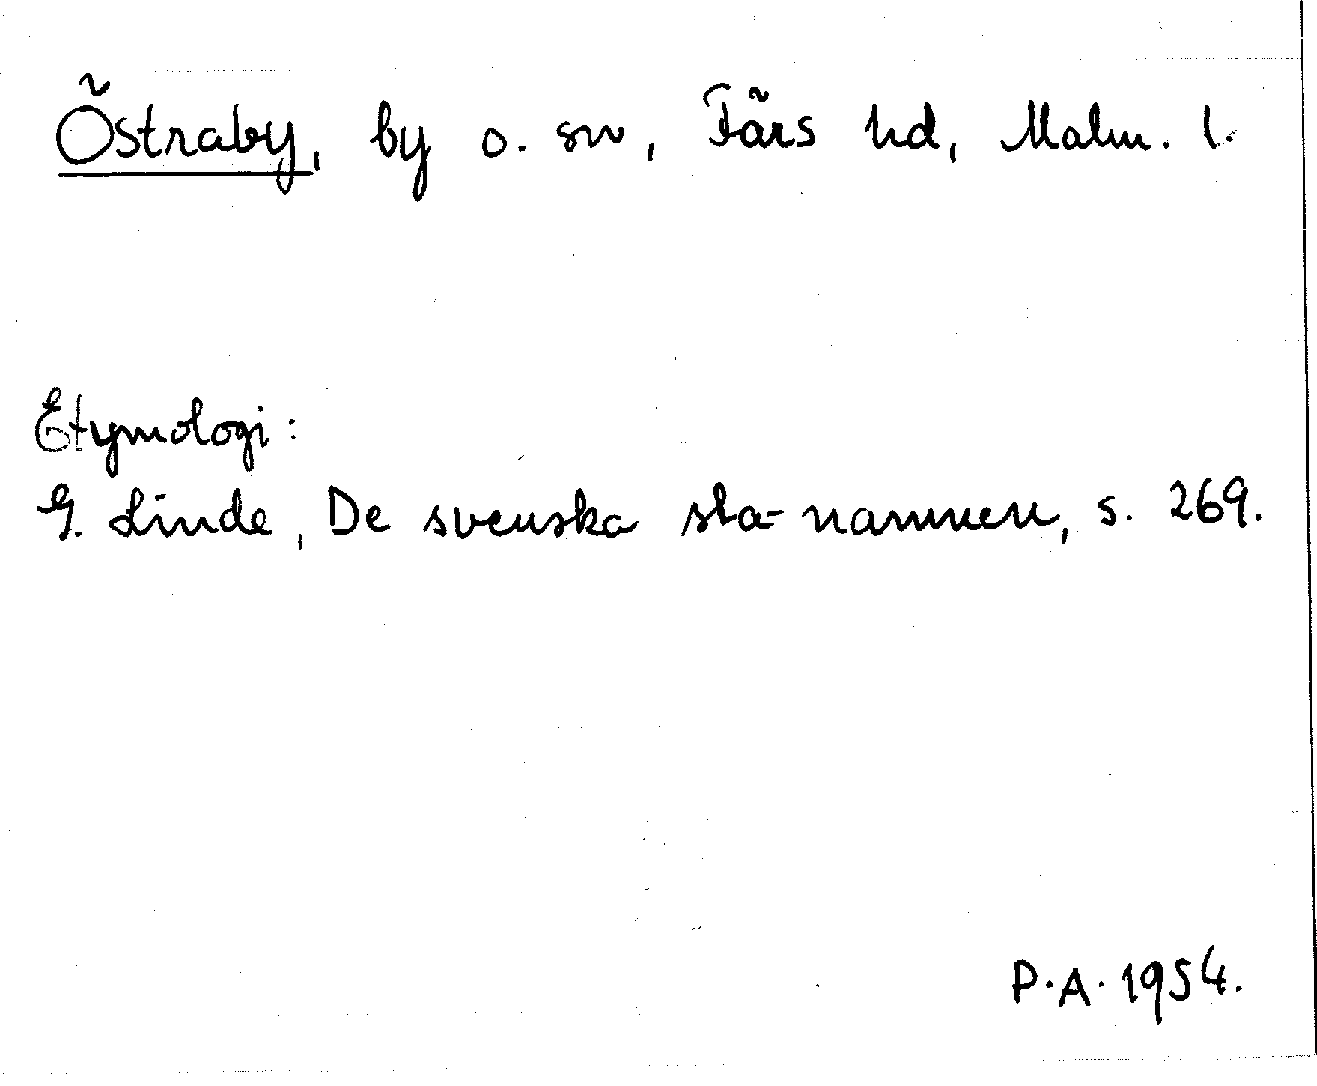 Östraby, by o. sn, Färs hd, Malm. l.
Etymologi:
G. Linde, De svenska sta-namnen, s. 269.
P.A. 1954.